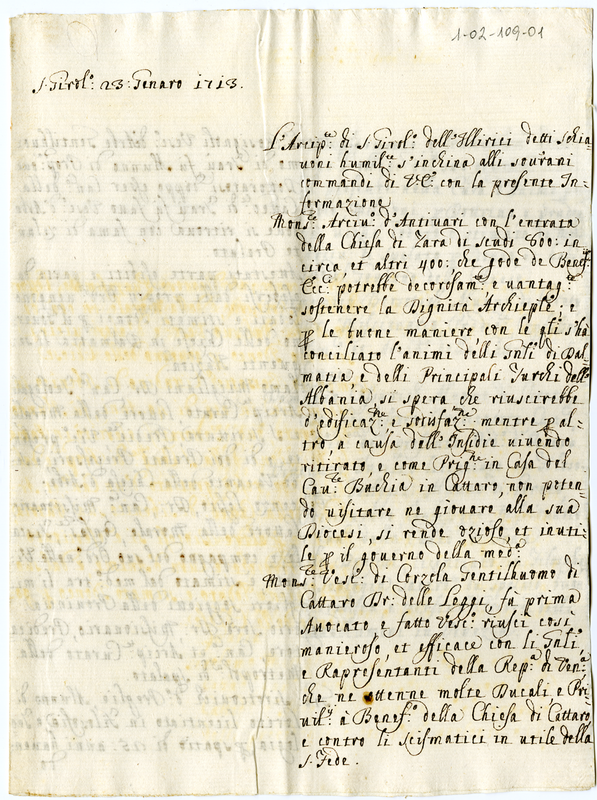 1-02-109-01
S. Girol.º: 23: Genaro 1713.
L'Arcip.te di S. Girol.º dell'Illirici detti Schia-
uoni humil.te s'inchina alli sourani
commandi di V.E. con la presente In-
formazione
Mons.r Arciu.º d'Antiuari con l'entrata
della Chiesa di Zara di scudi 600: in
circa, et altri 400: che gode de Benef.
Ecc. potrebbe decorosam.te e uantag.te
sostenere la Dignità Archieple; e
ꝑ le buone maniere con le qli s'hà
conciliato l'animi delli Gnli di Dal-
matia e delli Principali Turchi dell'
Albania, si spera che riuscirebbe
d'edificaz.ne e sotisfaz.ne mentre ꝑ al-
tro, à causa dell'Insidie uiuendo
ritirato, e come Prig.ne in Casa del
Cau.re Buchia in Cattaro, non poten-
do uisitare ne giouare alla sua
Diocesi, si rende ozioso, et inuti-
le ꝑ il gouerno della med.ª
Mons.r Vesc.º di Corzola Gentilhuomo di
Cattaro Dr. delle Leggi, fù prima
Auocato e fatto Vesc.º riuscì così
manieroso, et efficace con li Gnli,
e Rapresentanti della Rep.ª di Ven.ª
che ne ottenne molte Ducali e Pri-
uil.ij à Benef.º della Chiesa di Cattaro,
e contro li scismatici in utile della
S. Fede.